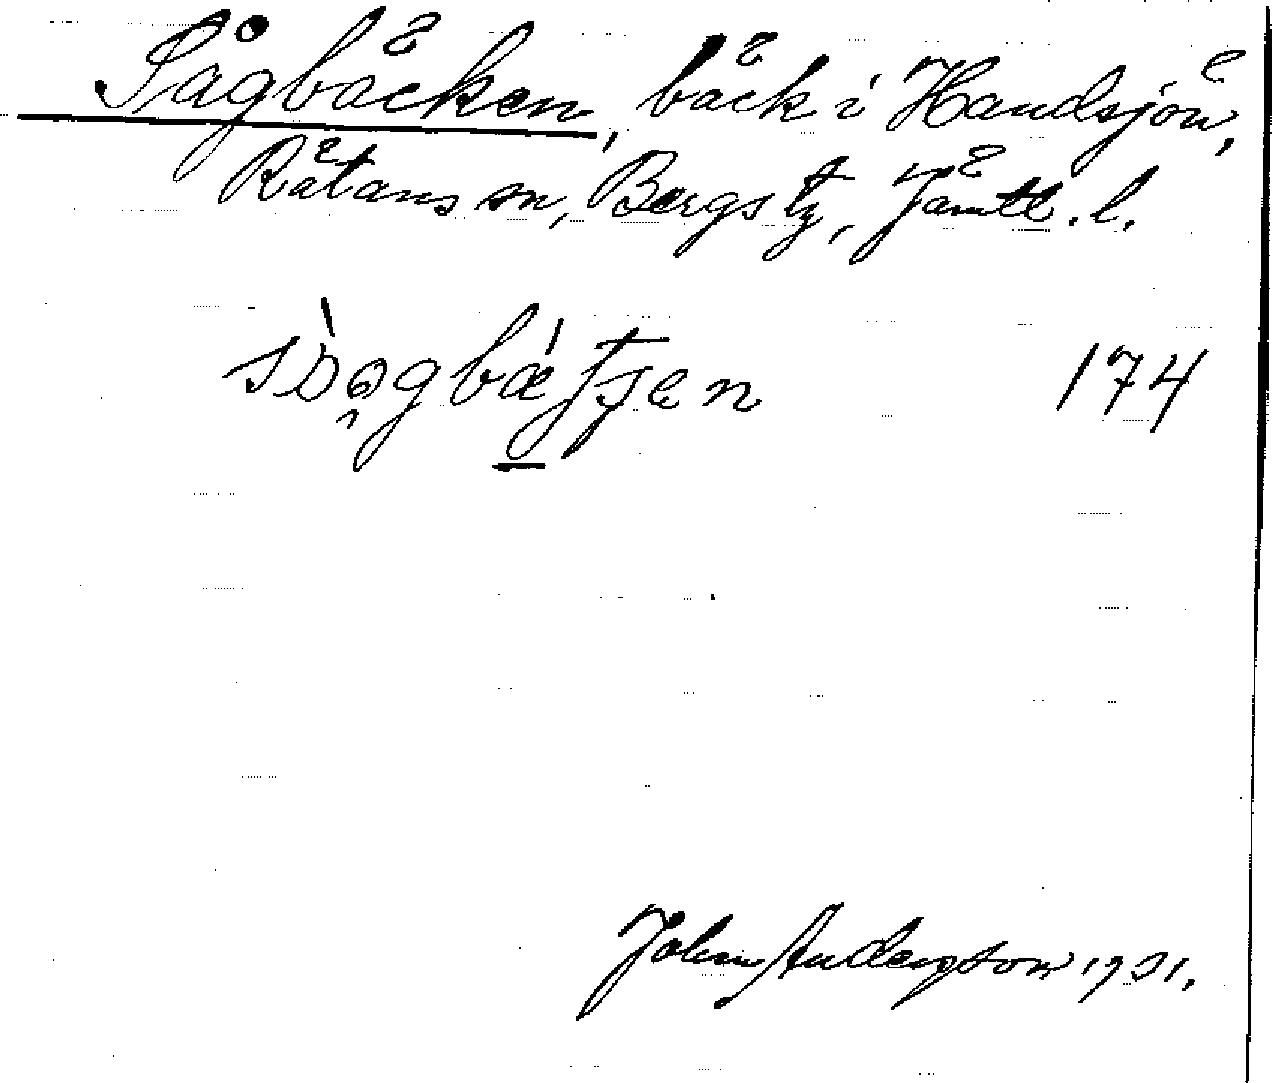 Sågbäcken, bäck i Handsjön,
Rätans sn, Bergs tg, Jämtl. l.
174
John Anderson 1931.